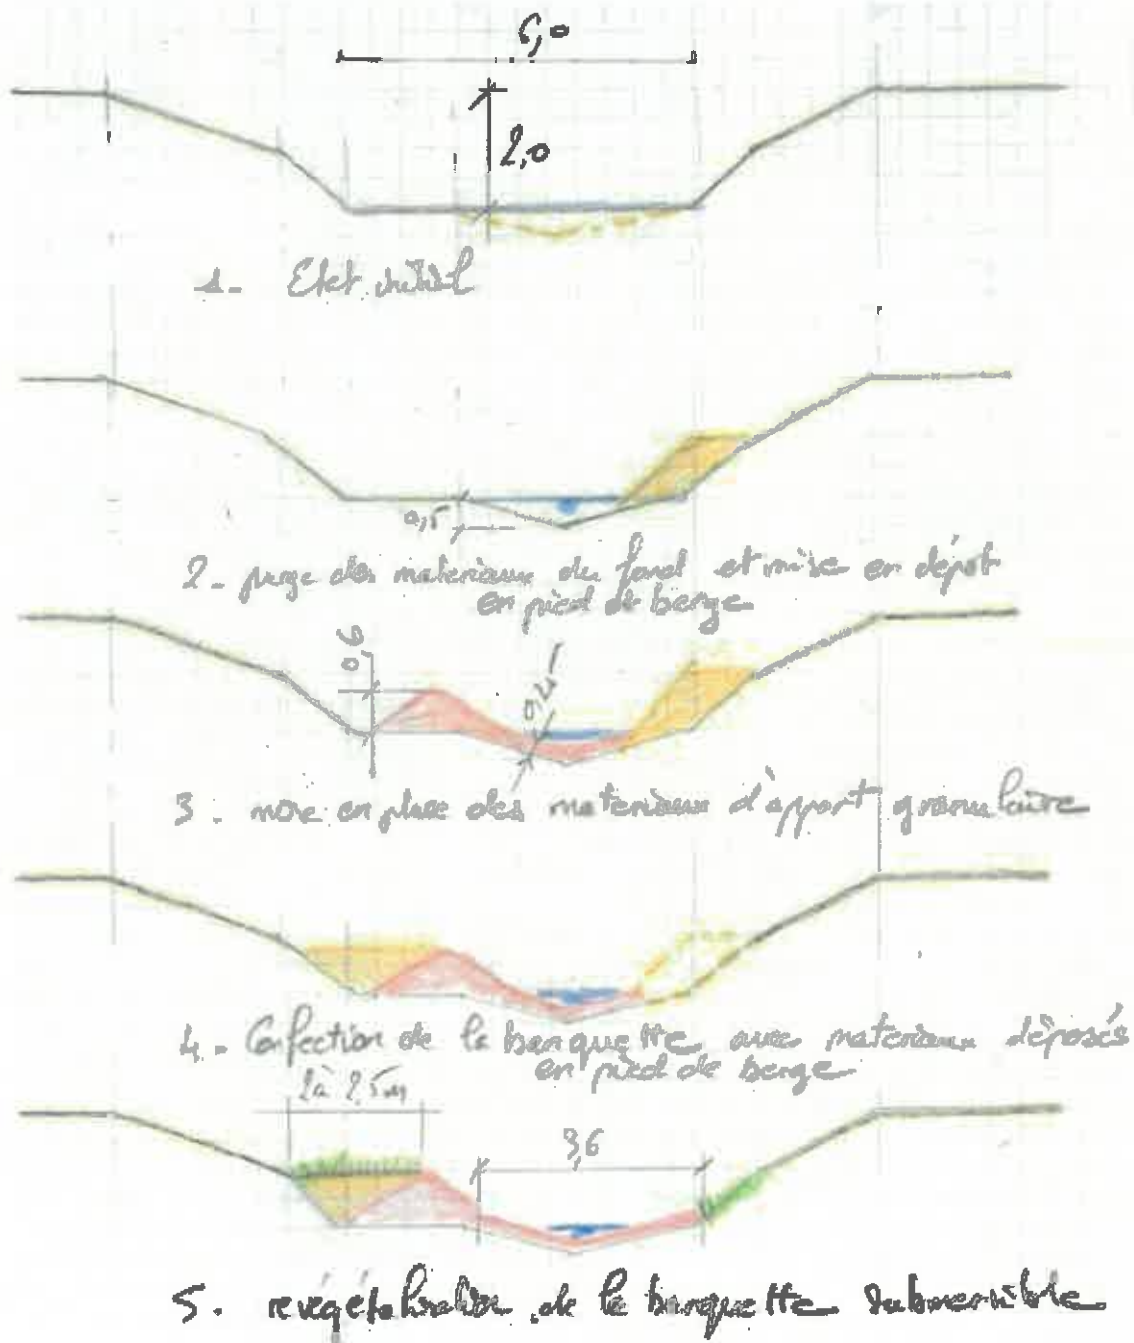 6,0
2,0
1- Etat initial
0,5
2- purge des materiaux du fond et mise en dépôt
en pied de berge
0,6
0,25
3- mise en place des materiaux d'apport granulaire
4- Confection de la banquette avec materiaux déposés
en pied de berge
2 à 2,5m
3,6
5- revégétalisation de la banquette submersible